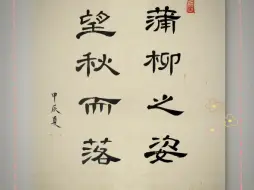 蒲柳之姿
望秋而落
甲辰夏